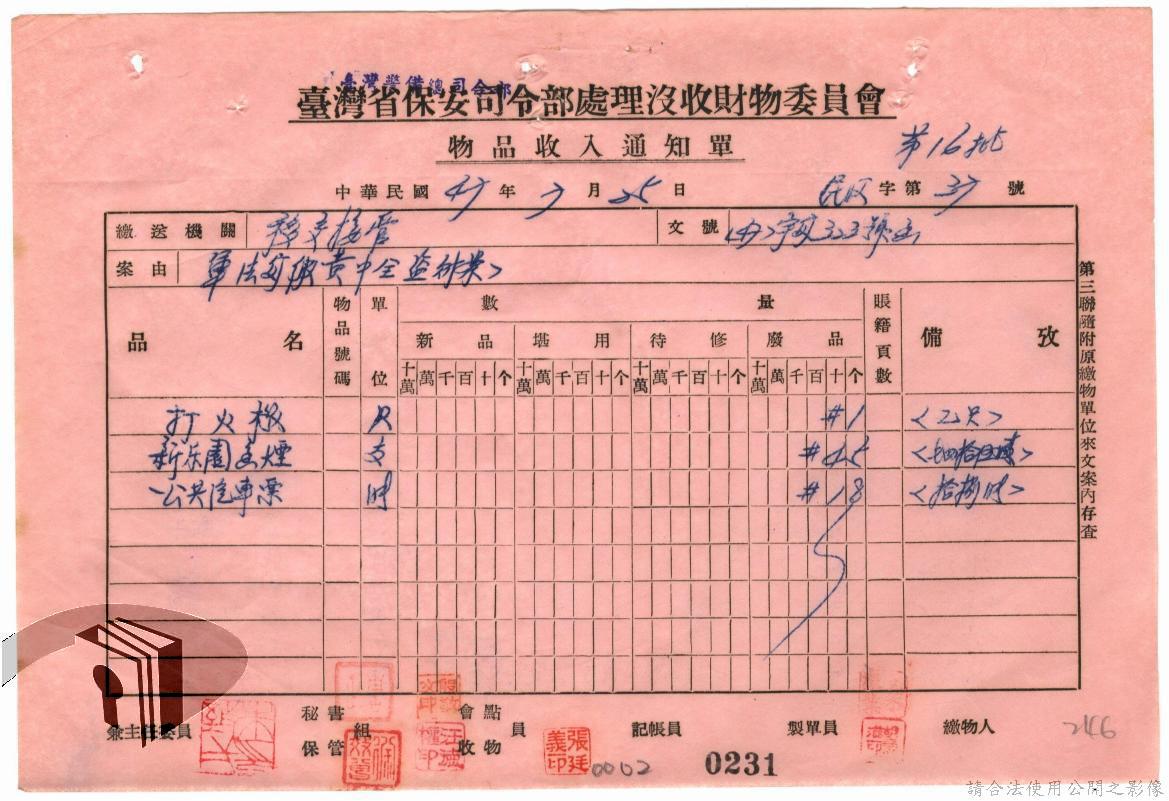 臺灣警備總司令部
臺灣省保安司令部處理沒收財物委員會
物品收入通知單
第16批
中華民國 47 年 7 月 25 日
字第 37 號
繳送機關 移交接管
文號 字第323號函
案由
品名 物品號碼 單位 數量 賬籍頁數 備攷
新品 堪用 待修 廢品
十萬 萬 千 百 十 个 十萬 萬 千 百 十 个 十萬 萬 千 百 十 个 十萬 萬 千 百 十 个
打火機 只 #1
新乐園香煙 支 #45
公共汽車票 #18
第三聯隨附原繳物單位來文案內存查
兼主任委員
秘書
保管
組
會點
收物
員
記帳員
製單員
繳物人
張廷義印
0002
0231
246
請合法使用公開之影像